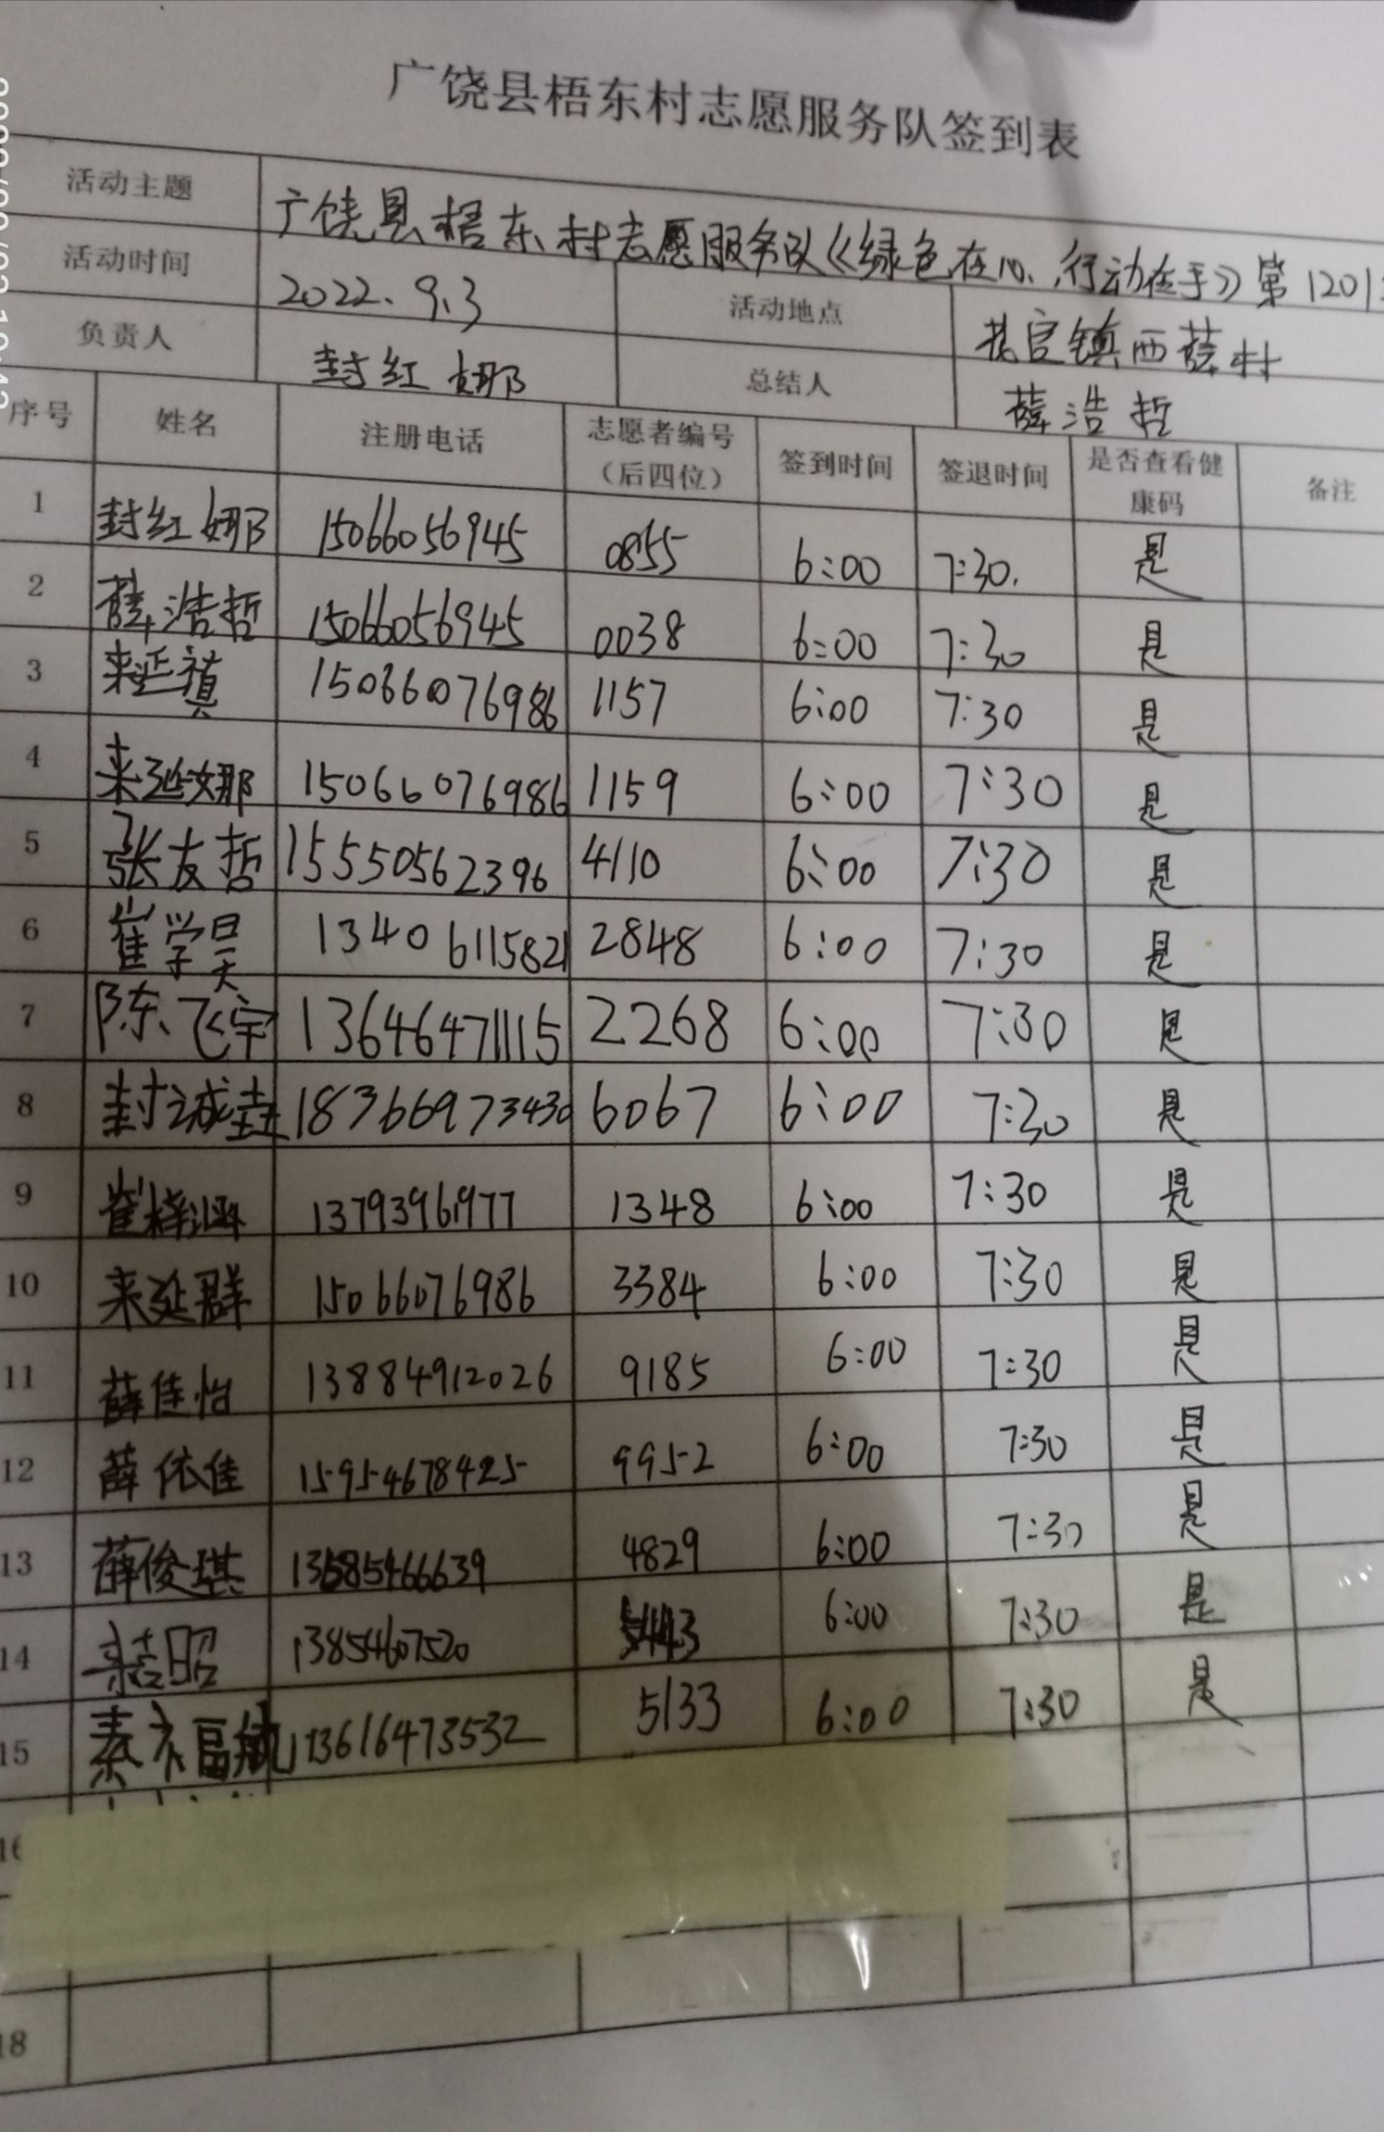 广饶县梧东村志愿服务队签到表
活动主题 广饶县梧东村志愿服务队《绿色在心、行动在手》第1201
活动时间 2022.9.3 活动地点 花官镇西薛村
负责人 封红娜 总结人 薛浩哲
序号 姓名 注册电话 志愿者编号（后四位） 签到时间 签退时间 是否查看健康码 备注
1 封红娜 15066056945 0855 6:00 7:30. 是
2 薛浩哲 15066056945 0038 6:00 7:30 是
3 来延禛 15066076986 1157 6:00 7:30 是
4 来延娜 15066076986 1159 6:00 7:30 是
5 张友哲 15550562396 4110 6:00 7:30 是
6 崔学昊 13406115821 2848 6:00 7:30 是
7 陈飞宇 13646471115 2268 6:00 7:30 是
8 封诚 18366973430 6067 6:00 7:30 是
9 崔梓涵 13793961977 1348 6:00 7:30 是
10 来延群 15066076986 3384 6:00 7:30 是
11 薛佳怡 13884912026 9185 6:00 7:30 是
12 薛依佳 15954678425 9952 6:00 7:30 是
13 薛俊琪 4829 6:00 7:30 是
14 昭 13854607520 6:00 7:30 是
15 福 13616473532 5133 6:00 7:30 是
16
18